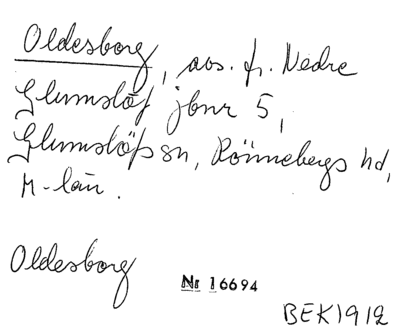 Oldesborg, avs. fr. Nedre
Glumslöf jbnr 5,
Glumslöfs sn, Rönnebergs hd,
M-län.
Oldesborg
Nr 16694
BEK1912